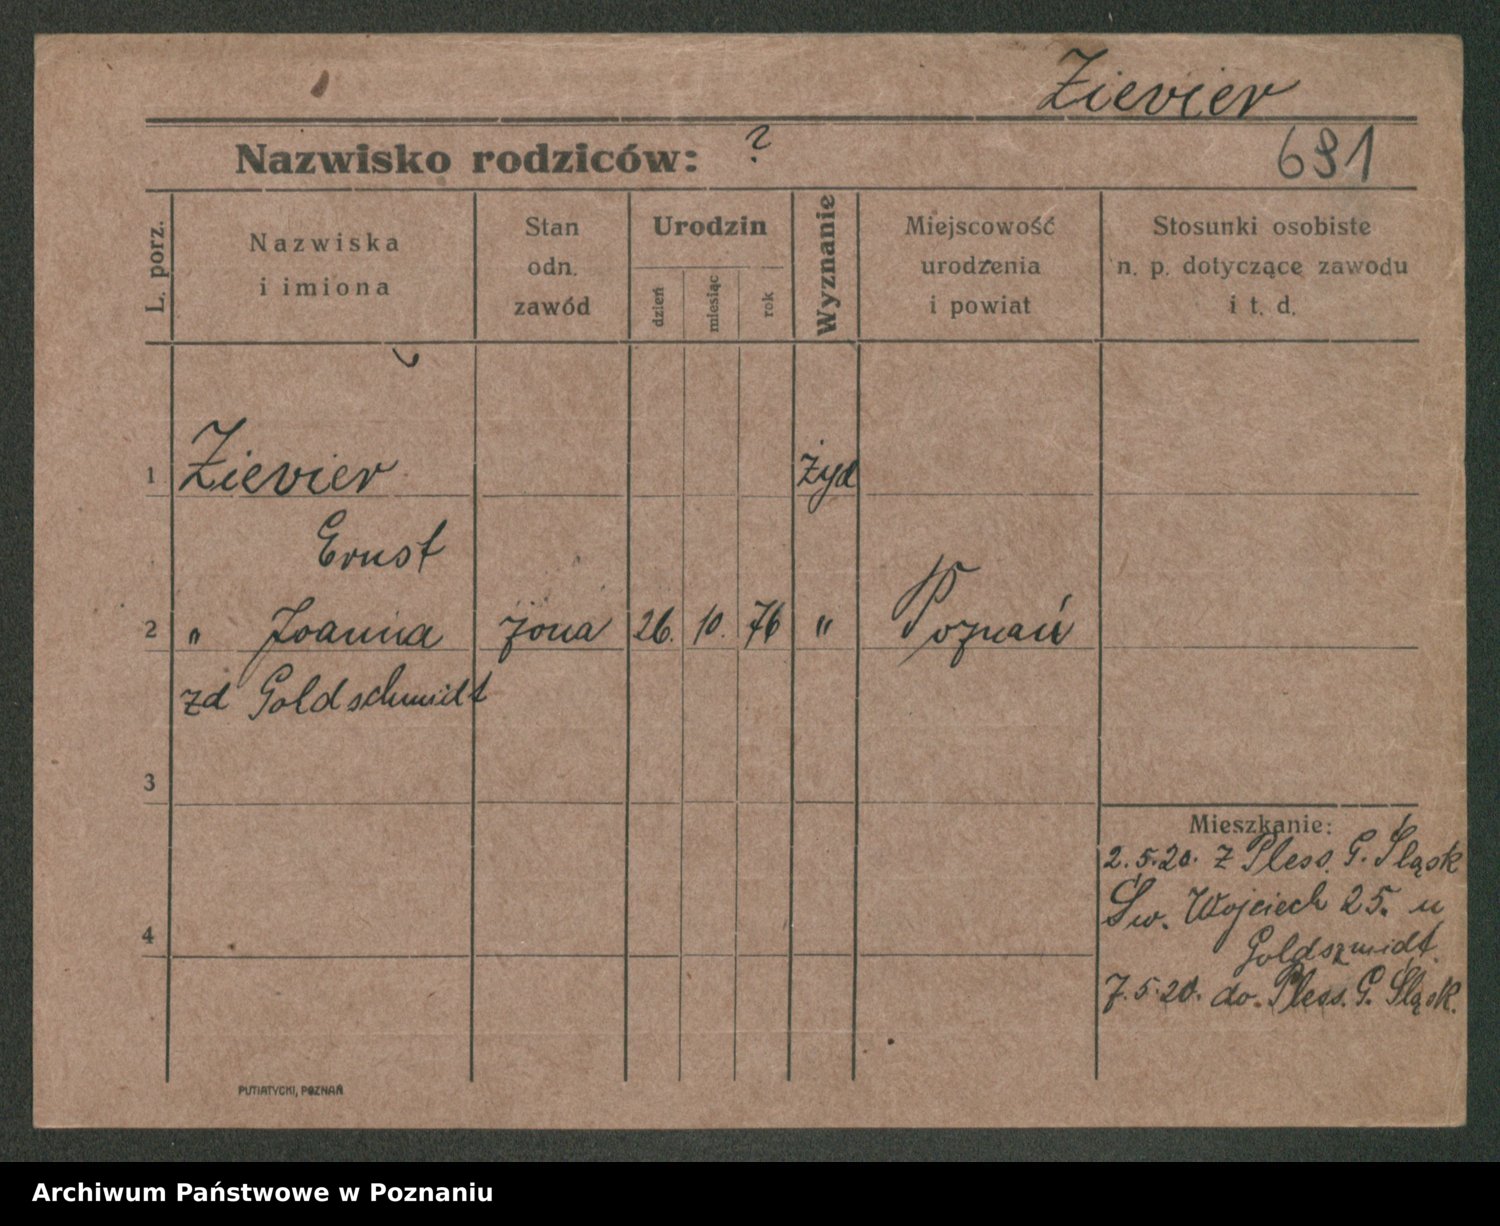 Zievier
Nazwisko rodziców: ?
691
L. porz.
Nazwiska
i imiona
Stan
odn.
zawód
Urodzin
dzień
miesiąc
rok
Wyznanie
Miejscowość
urodzenia
i powiat
Stosunki osobiste
n. p. dotyczące zawodu
i t. d.
1 Zievier żyd
Ernst
2 " Joanna żona 26. 10. 76 " Poznań
zd Goldschmidt
3
Mieszkanie:
2.5.20. z Pless. G. Śląsk
Św. Wojciech 25. u
Goldszmidt.
4
7.5.20. do. Pless. G. Śląsk.
PUTIATYCKI, POZNAŃ
Archiwum Państwowe w Poznaniu